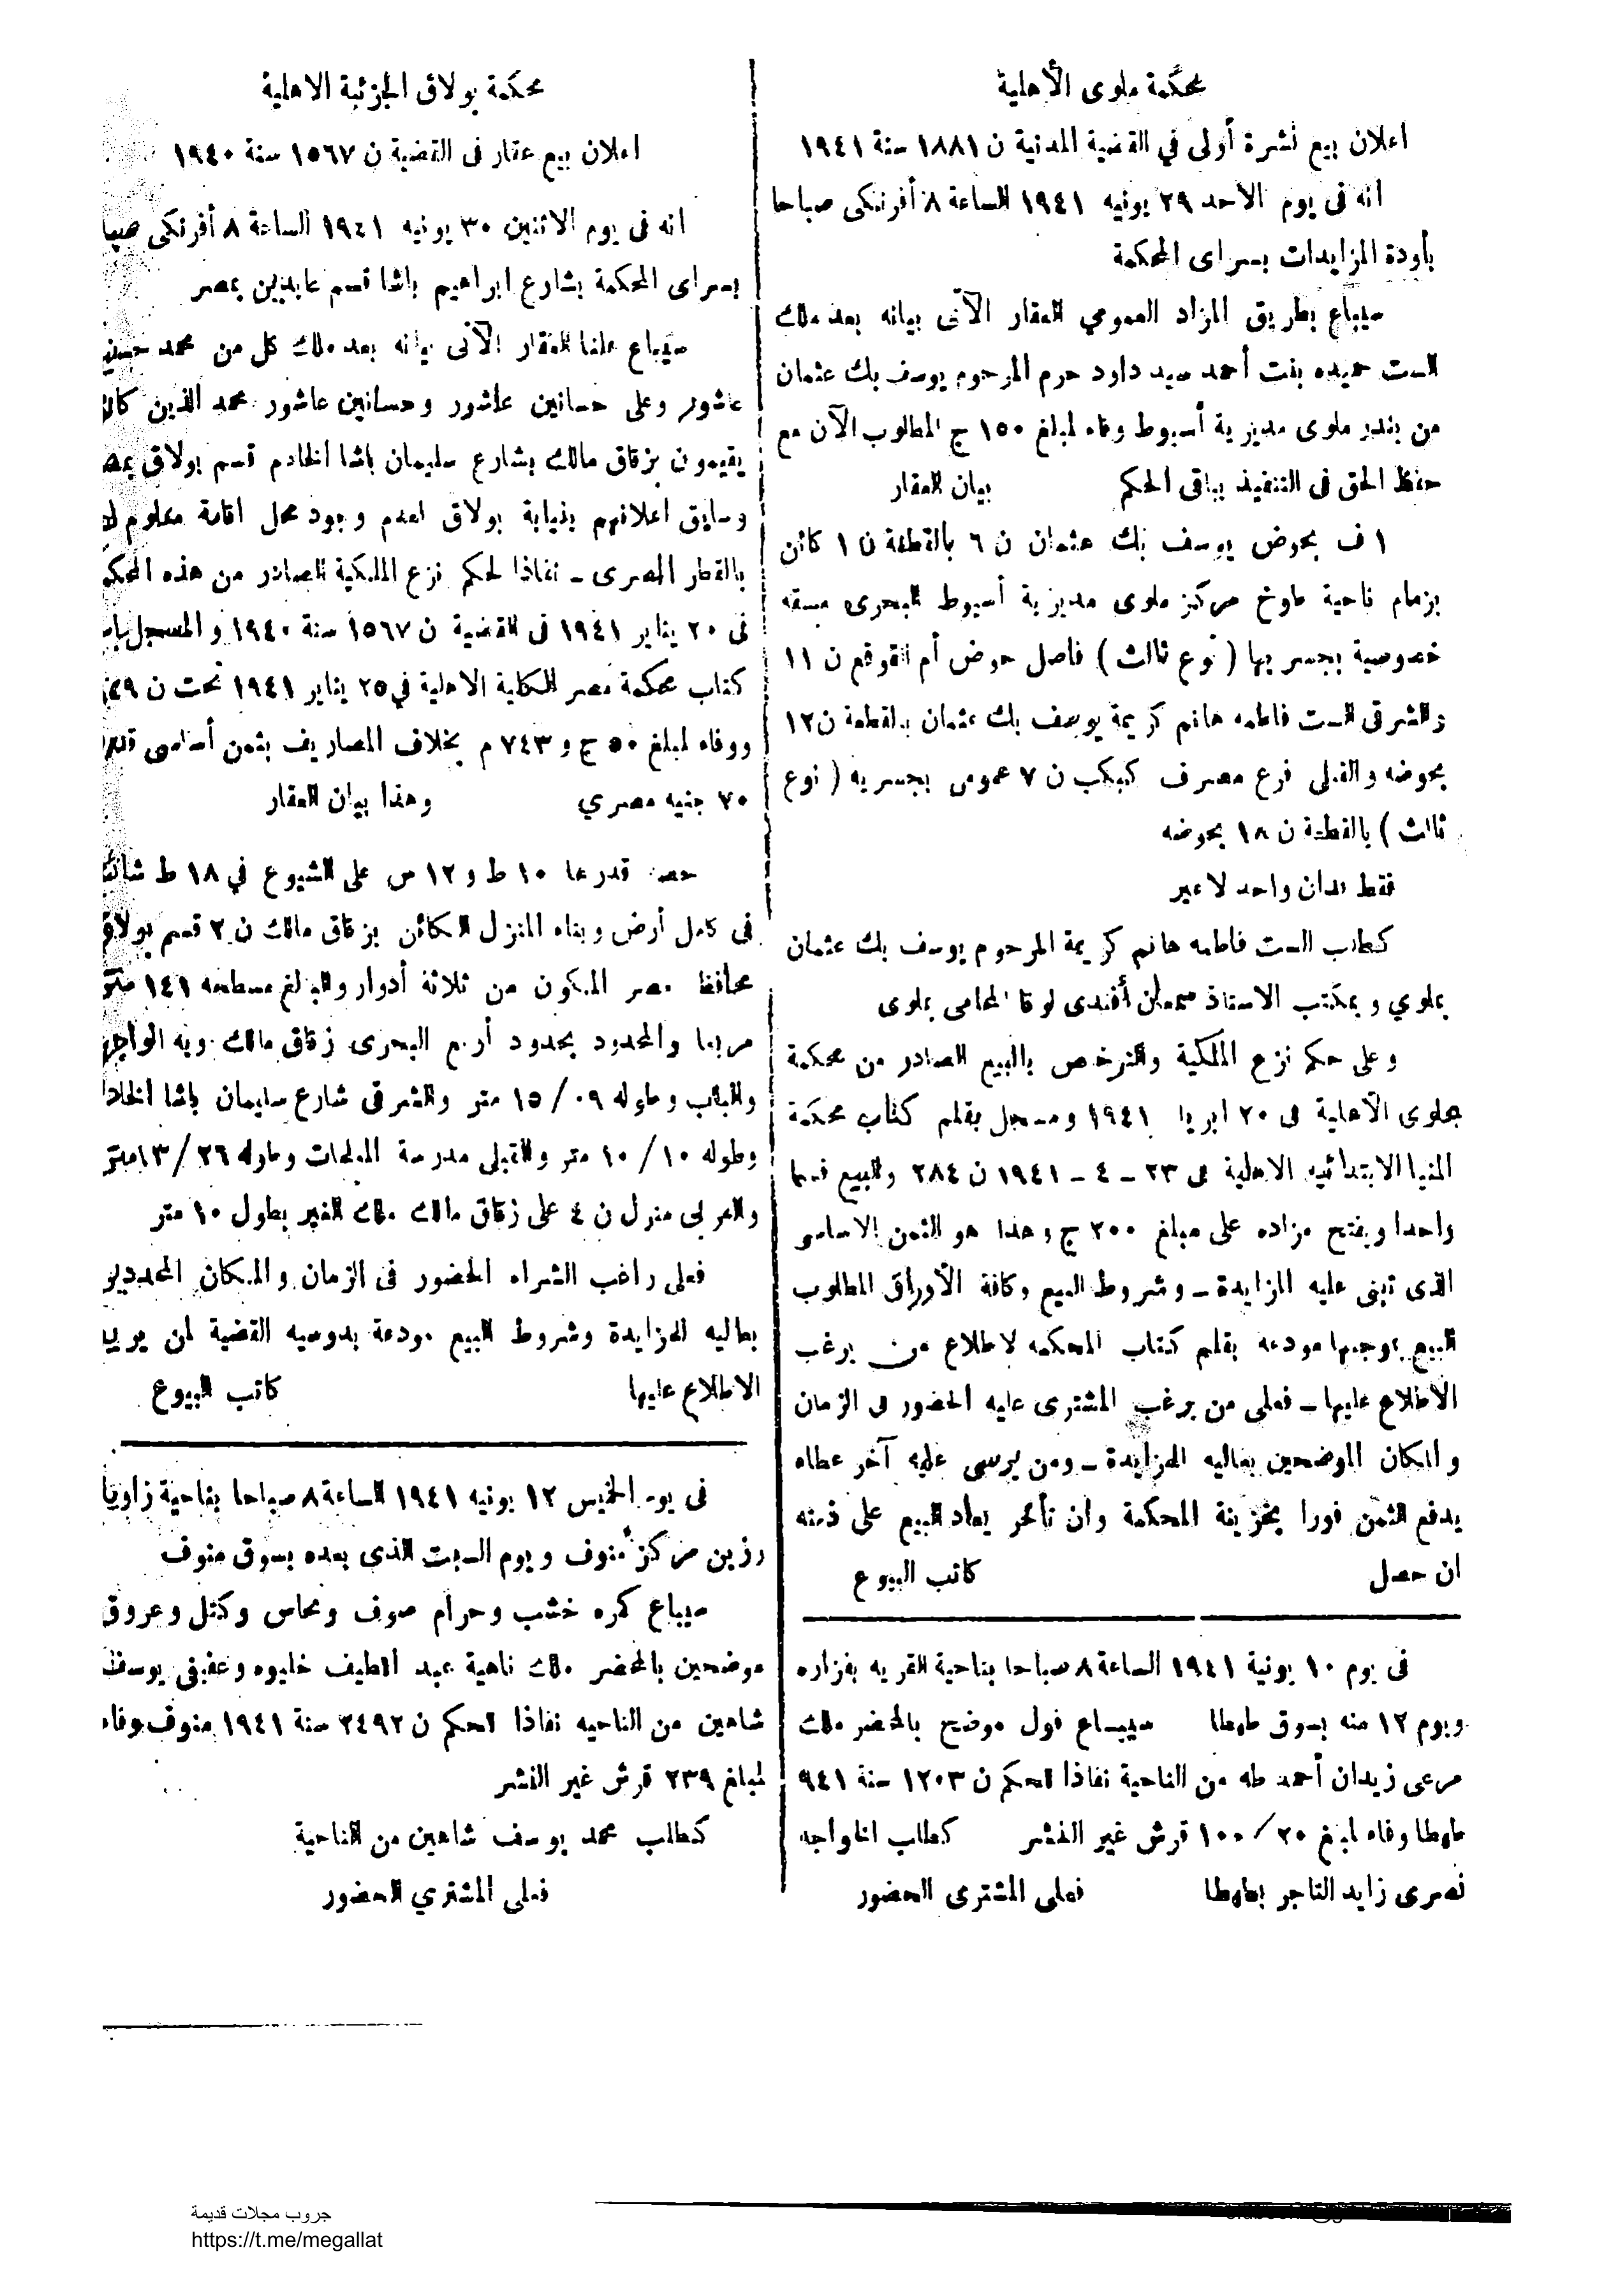 محكمة ملوى الأهلية
اعلان بيع نشرة أولى في القضية المدنية ن ١٨٨١ سنة ١٩٤١
انه فى يوم الاحد ٢٩ يونيه ١٩٤١ الساعة ٨ أفرنكى صباحا
بأودة المزايدات بسراى المحكمة
سيباع بطريق المزاد العمومي العقار الآتى بيانه بعد ملك
الست حميده بنت أحمد سيد داود حرم المرحوم يوسف بك عثمان
من بندر ملوى مديرية أسيوط وفاء لمبلغ ١٥٠ ج المطلوب الآن مع
حفظ الحق فى التنفيذ بباقى الحكم بيان العقار
١ ف بحوض يوسف بك عثمان ن ٦ بالقطعة ن ١ كائن
بزمام ناحية طوخ مركز ملوى مديرية أسيوط البحرى مسقه
خصوصية بجسريها ( نوع ثالث ) فاصل حوض أم القوقع ن ١١
والشرقى الست فاطمه هانم كريمة يوسف بك عثمان بالقطعة ن ١٢
بحوضه والقبلى فرع مصرف كبكب ن ٧ عمومى بجسريه ( نوع
ثالث ) بالقطعة ن ١٨ بحوضه
فقط فدان واحد لا غير
كطلب الست فاطمه هانم كريمة المرحوم يوسف بك عثمان
بملوي وبمكتب الاستاذ أفندى لوقا المحامى بملوى
وعلى حكم نزع الملكية والترخيص بالبيع الصادر من محكمة
ملوى الأهلية فى ٢٠ ابريل ١٩٤١ ومسجل بقلم كتاب محكمة
المنيا الابتدائيه الاهلية فى ٢٣ ـ ٤ ـ ١٩٤١ ن ٢٨٤ والبيع قسما
واحدا ويفتح مزاده على مبلغ ٢٠٠ ج وهذا هو الثمن الاساسى
الذى تبنى عليه المزايدة ـ وشروط البيع وكافة الأوراق المطلوب
البيع بموجبها مودعه بقلم كتاب المحكمه لاطلاع من يرغب
الاطلاع عليها ـ فعلى من يرغب المشترى عليه الحضور فى الزمان
والمكان الموضحين بعاليه المزايدة ـ ومن يرسى عليه آخر عطاء
يدفع الثمن فورا بخزينة المحكمة وان تأخر يعاد البيع على ذمته
ان حصل كاتب البيوع
فى يوم ١٠ يونية ١٩٤١ الساعة ٨ صباحا بناحية القريه بفزاره
ويوم ١٢ منه بسوق طهطا سيباع فول موضح بالمحضر ملك
مرعى زيدان أحمد طه من الناحية نفاذا للحكم ن ١٢٠٣ سنة ٩٤١
طهطا وفاء لمبلغ ١٠٠/٢٠ قرش غير النشر كطلب الخواجه
نصرى زايد التاجر بطهطا فعلى المشترى الحضور
محكمة بولاق الجزئية الاهلية
اعلان بيع عقار فى القضية ن ١٥٦٧ سنة ١٩٤٠
انه فى يوم الاثنين ٣٠ يونيه ١٩٤١ الساعة ٨ أفرنكى صبا
بسراى المحكمة بشارع ابراهيم باشا قسم عابدين بمصر
سيباع علنا العقار الآتى بيانه بعد ملك كل من محمد
عاشور وعلى حسانين عاشور وحسانين عاشور محمد الذين كانوا
يقيمون بزقاق مالك بشارع سليمان باشا الخادم قسم بولاق بمصر
وسابق اعلانهم بنيابة بولاق لعدم وجود محل اقامة معلوم
بالقطر المصرى ـ نفاذا لحكم نزع الملكية الصادر من هذه المحكمة
فى ٢٠ يناير ١٩٤١ فى القضية ن ١٥٦٧ سنة ١٩٤٠ والمسجل
كتاب محكمة مصر الكلية الاهلية في ٢٥ يناير ١٩٤١ تحت ن
ووفاء لمبلغ ٥٠ ج و ٧٤٣ م بخلاف المصاريف بثمن أساسى قدره
٧٠ جنيه مصري وهذا بيان العقار
حصة قدرها ١٠ ط و ١٢ س على الشيوع في ١٨ ط شائعة
فى كامل أرض وبناء المنزل الكائن بزقاق مالك ن ٢ قسم بولاق
محافظة مصر المكون من ثلاثة أدوار والبالغ مسطحه ١٤١ متر
مربعا والمحدود بحدود أربع البحرى زقاق مالك وبه الواجهة
والباب وطوله ١٥/٠٩ متر والشرقى شارع سليمان باشا الخادم
وطوله ١٠/١٠ متر والقبلى مدرسة المعلمات وطوله ١٣/٢٦ متر
والغربى منزل ن ٤ على زقاق مالك ملك الغير بطول ١٠ متر
فعلى راغب الشراء الحضور فى الزمان والمكان المحددين
بعاليه المزايدة وشروط البيع مودعة بدوسيه القضية لمن يريد
الاطلاع عليها كاتب البيوع
فى يوم الخميس ١٢ يونيه ١٩٤١ الساعة ٨ صباحا بناحية زاوية
رزين مركز منوف ويوم السبت الذى بعده بسوق منوف
سيباع كمره خشب وحرام صوف ونحاس وكتل وعروق
موضحين بالمحضر ملك ناهية عبد اللطيف خليوه وعفيفى يوسف
شاهين من الناحيه نفاذا للحكم ن ٢٤٩٢ سنة ١٩٤١ منوف وفاء
لمبلغ ٢٣٩ قرش غير النشر
كطلب محمد يوسف شاهين من الناحية
فعلى المشتري الحضور
جروب مجلات قديمة
https://t.me/megallat